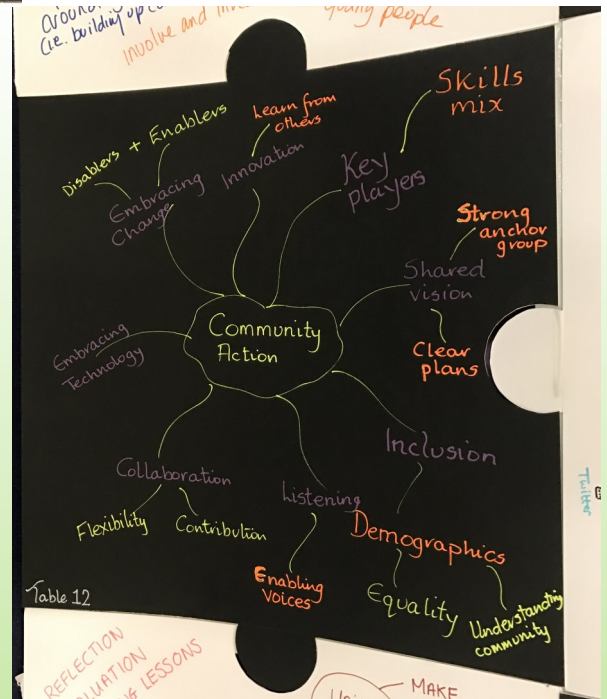 (i.e. building up
Involve and
young people
Disablers + Enablers
Embracing
Change
Learn from
others
Innovation
Key
players
Skills
mix
Strong
anchor
group
Shared
vision
Clear
plans
Community
Action
Embracing
Technology
Collaboration
Flexibility
Contribution
Listening
Enabling
Voices
Inclusion
Demographics
Equality
Understanding
community
Table 12
Twitter
REFLECTION
LESSONS
MAKE